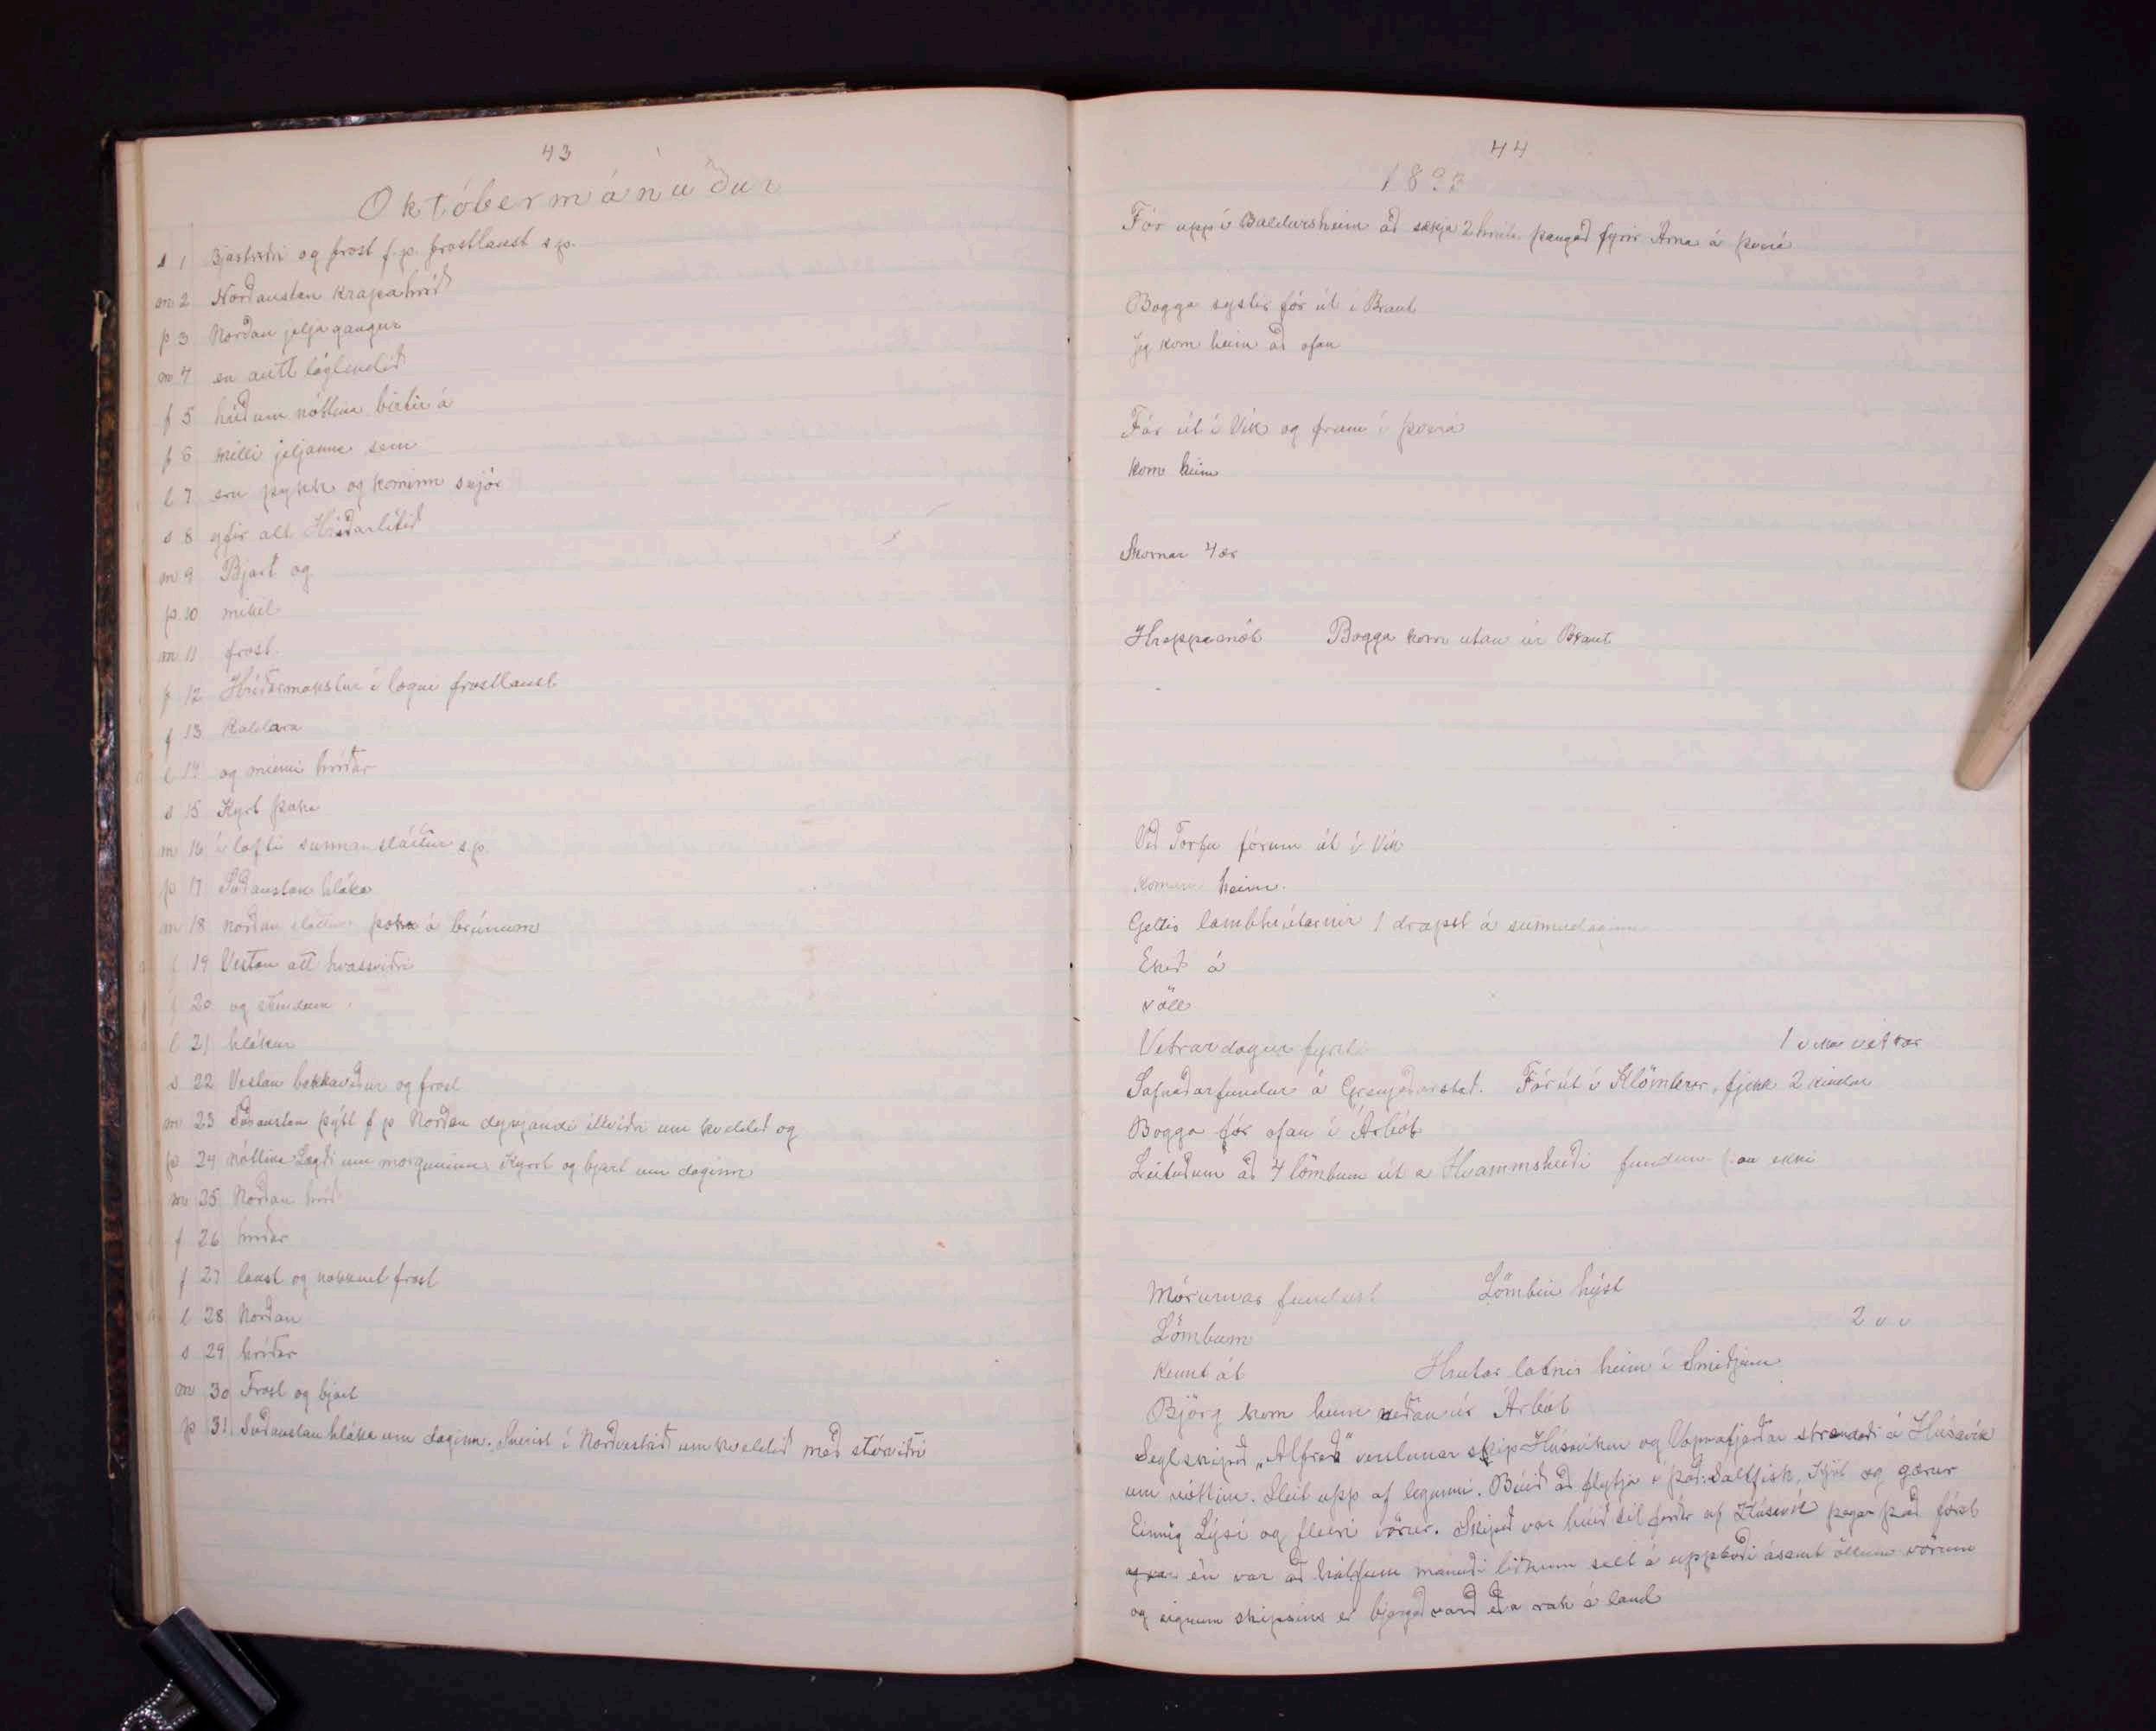 43
Októbermánuður
s 1 Bjartviðri og frost f.p. frostlaust s.p.
m 2 Norðaustan krapahríð
þ 3 Norðan jeljagangur
m 4 en autt láglendið
f 5 hríð um nóttina birtir á
f 6 milli jeljanna sem
l 7 eru þykk og kominn snjór
s 8 yfir alt Hríðarlítið
m 9 Bjart og
þ 10 mikil
m 11 frost
f 12 Hríðarmokstur í logni frostlaust
f 13 Kaldara
l 14 og minni hríðar
s 15 Kyrt þoka
m 16 í lofti sunnan sláttur s.p.
þ 17 Suðaustan hláka
m 18 norðan sláttur þoka á brúnum
f 19 Vestan átt hvassviðri
f 20 og stundum
l 21 hlákur
s 22 Vestan bakkaveður og frost
m 23 Suðaustan þýtt f p Norðan dynjandi illviðri um kveldið og
þ 24 nóttina Lægði um morguninn Kyrrt og bjart um daginn
m 25 Norðan hríð
f 26 hríðar
f 27 laust og nokkurt frost
l 28 Norðan
s 29 hríðar
m 30 Frost og bjart
þ 31 Suðaustan hláka um daginn. Snerist í Norðvestrið um kveldið með stórviðri
44
1893
Fór upp í Baldursheim að sækja 2 hrúta þangað fyrir Árna á Þverá
Bogga systir fór út í Braut
Jeg kom heim að ofan
Fór út í Vík og fram í Þverá
kom heim
Skornar 4 ær
Hreppamót Bogga kom utan úr Braut
Við Torfu fórum út í Vík
Komum heim.
Geltir lambhrútarnir 1 drapst á sunnudaginn
Ekið á
völl
Vetrardagur fyrsti 1 vika vetrar
Safnaðarfundur á Grenjaðarstað. Fór út í Klömbrar, fjekk 2 kindur
Bogga fór ofan í Árbót
Leituðum að 4 lömbum út á Hvammsheiði fundum þau ekki
Mórurnar fundust Lömbin hýst
Lömbum 2 v v
Kennt át Hrútar látnir heim í Smiðjuna
Björg kom heim neðan úr Árbót
Seglskipið „Alfred" verslunar skip Húsavíkur og Vopnafjarðar strandaði á Húsavík
um nóttina. Sleit upp af legunni. Búið að flytja í það: Saltfisk, Kjöt og gærur
Einnig Lýsi og fleiri vörur. Skipið var búið til ferðar af Húsavík þegar það fórst
og var en var að hálfum mánuði liðnum selt á uppboði ásamt öllum vörum
og eignum skipsins er bjargað varð eða rak á land